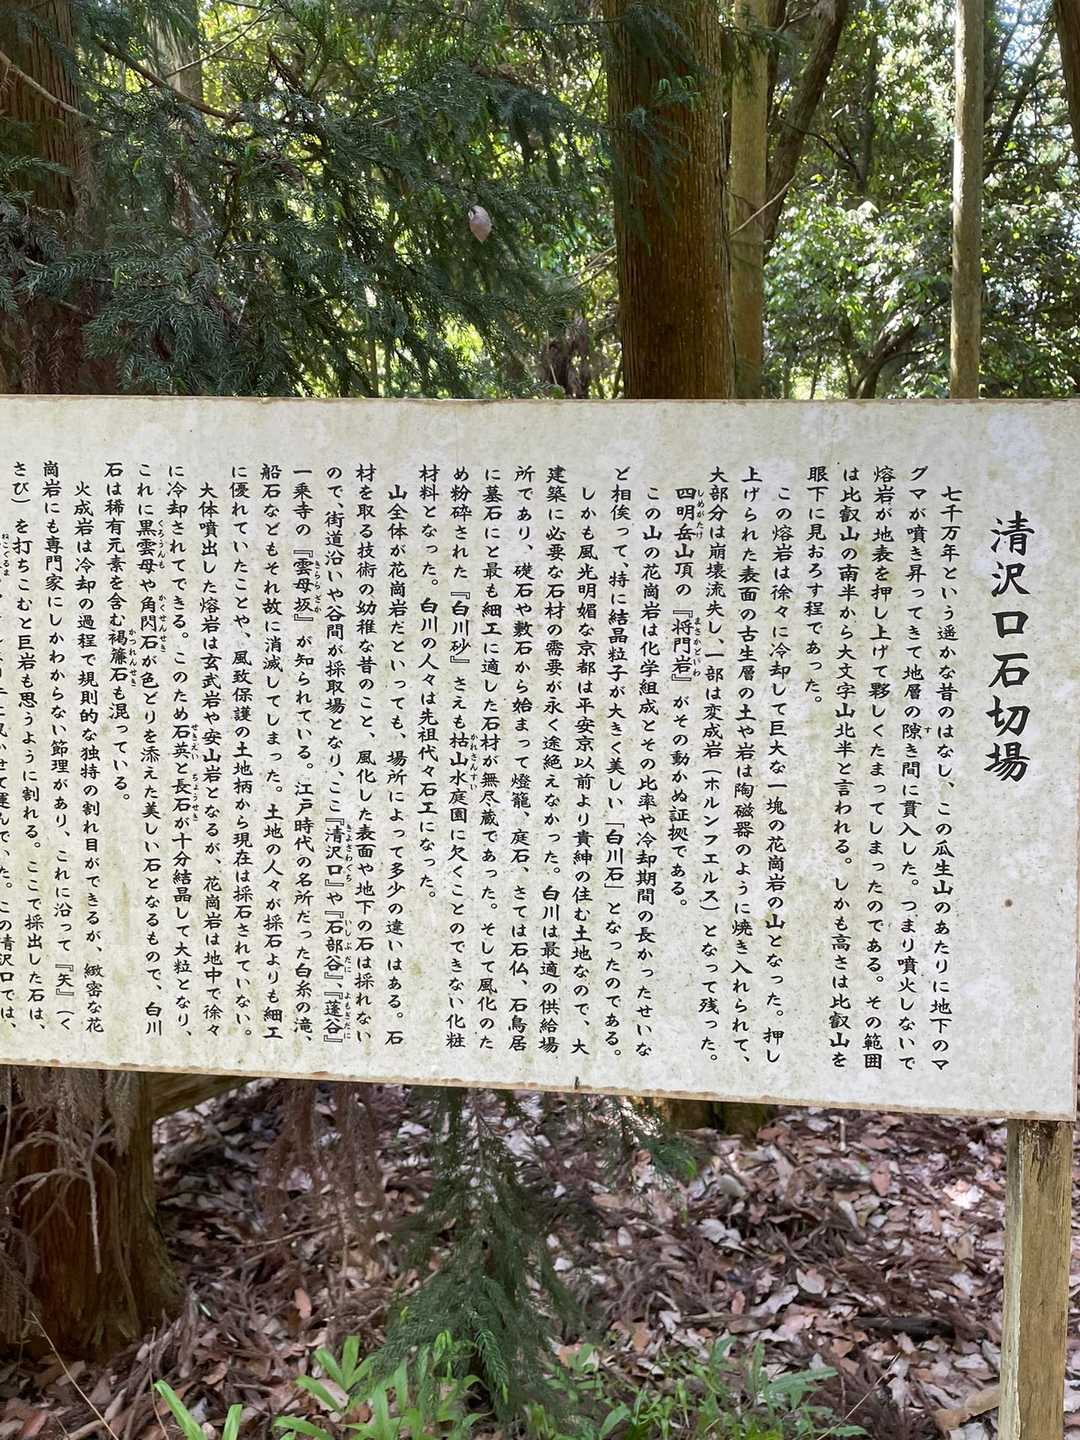 清沢口石切場
七千万年という遥かな昔のはなし、この瓜生山のあたりに地下のマ
グマが噴き昇ってきて地層の隙き間に貫入した。つまり噴火しないで
熔岩が地表を押し上げて夥しくたまってしまったのである。その範囲
は比叡山の南半から大文字山北半と言われる。しかも高さは比叡山を
眼下に見おろす程であった。
この熔岩は徐々に冷却して巨大な一塊の花崗岩の山となった。押し
上げられた表面の古生層の土や岩は陶磁器のように焼き入れられて、
大部分は崩壊流失し、一部は変成岩（ホルンフエルス）となって残った。
四明岳山頂の『将門岩』がその動かぬ証拠である。
この山の花崗岩は化学組成とその比率や冷却期間の長かったせいな
ど相俟って、特に結晶粒子が大きく美しい「白川石」となったのである。
しかも風光明媚な京都は平安京以前より貴紳の住む土地なので、大
建築に必要な石材の需要が永く途絶えなかった。白川は最適の供給場
所であり、礎石や敷石から始まって燈籠、庭石、さては石仏、石鳥居
に墓石にと最も細工に適した石材が無尽蔵であった。そして風化のた
め粉砕された『白川砂』さえも枯山水庭園に欠くことのできない化粧
材料となった。白川の人々は先祖代々石工になった。
山全体が花崗岩だといっても、場所によって多少の違いはある。石
材を取る技術の幼稚な昔のこと、風化した表面や地下の石は採れない
ので、街道沿いや谷間が採取場となり、ここ『清沢口』や『石部谷』、『蓬谷』
一乗寺の『雲母坂』が知られている。江戸時代の名所だった白糸の滝、
船石などもそれ故に消滅してしまった。土地の人々が採石よりも細工
に優れていたことや、風致保護の土地柄から現在は採石されていない。
大体噴出した熔岩は玄武岩や安山岩となるが、花崗岩は地中で徐々
に冷却されてできる。このため石英と長石が十分結晶して大粒となり、
これに黒雲母や角閃石が色どりを添えた美しい石となるもので、白川
石は稀有元素を含む褐簾石も混っている。
火成岩は冷却の過程で規則的な独特の割れ目ができるが、緻密な花
崗岩にも専門家にしかわからない節理があり、これに沿って『矢』（く
さび）を打ちこむと巨岩も思うように割れる。ここで採出した石は、
せて運んでいた。この清沢口では、